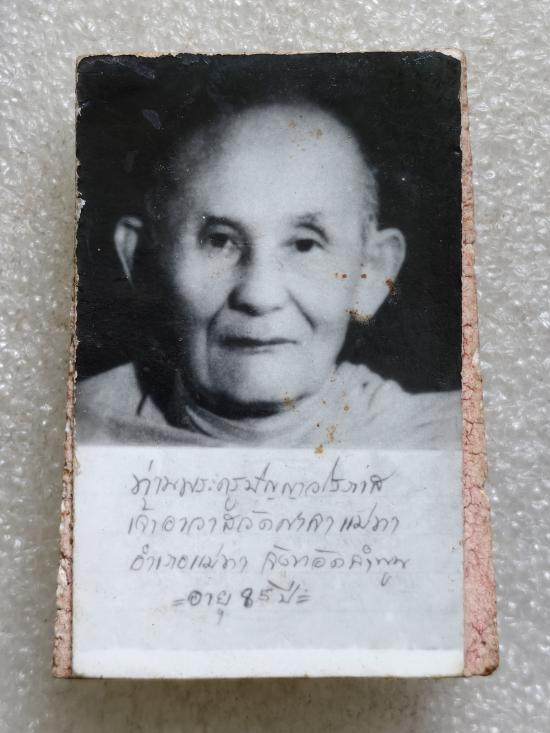 ท่านพระครูปัญญาวโรภาส
เจ้าอาวาสวัดศาลาแม่ทา
อำเภอแม่ทา จังหวัดลำพูน
=อายุ 85 ปี=